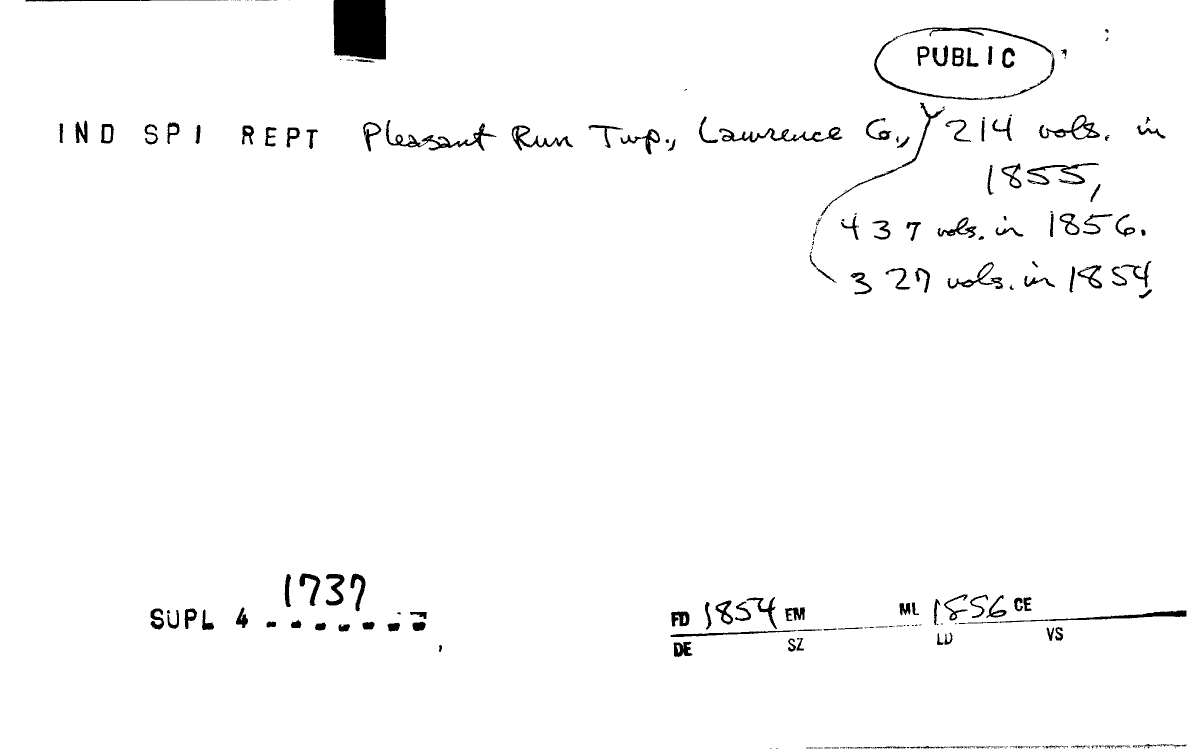 PUBLIC
IND SPI REPT Pleasant Run Twp., Lawrence Co., 214 vols. in
1855,
437 vols. in 1856.
327 vols. in 1854,
1737
SUPL 4
FD 1854 EM ML 1856 CE
DE SZ LD VS